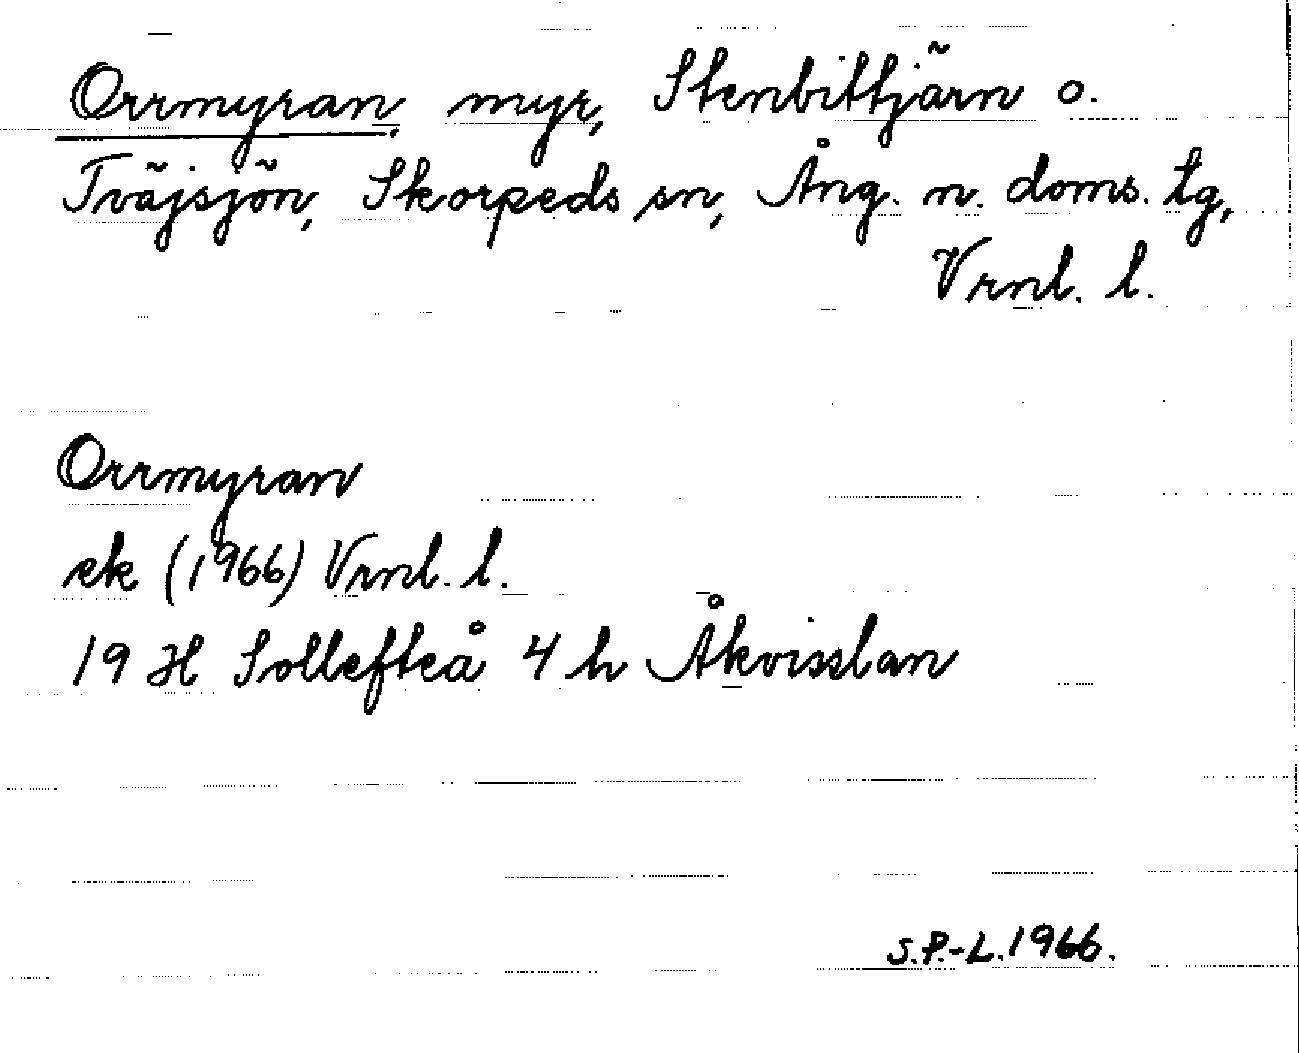 Orrmyran, myr, Stenbittjärn o.
Tväjsjön, Skorpeds sn, Ång. n. doms. tg,
Vrnl. l.
Orrmyran
ek (1966) Vrnl. l.
19 H Sollefteå 4 h Åkvisslan
S.P.-L. 1966.